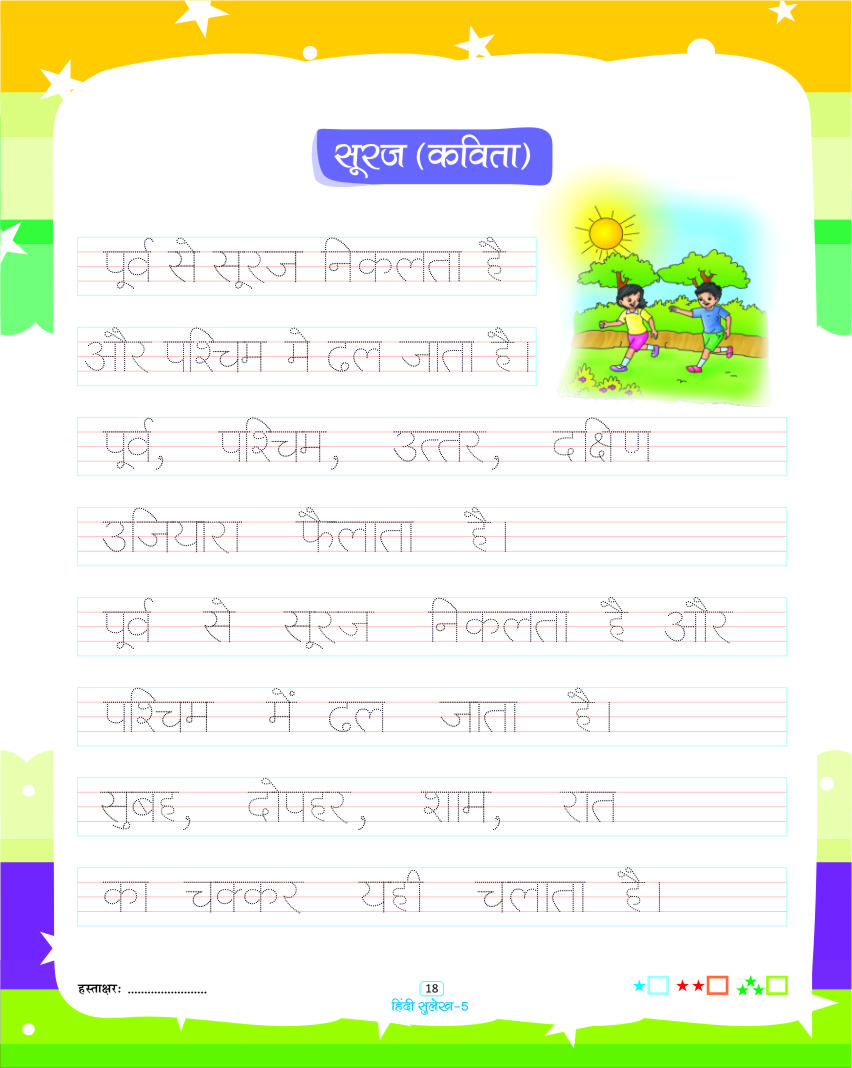 सूरज (कविता)
पूर्व से सूरज निकलता है
और पश्चिम मे ढल जाता है।
पूर्व, पश्चिम, उत्तर, दक्षिण
उजियारा फैलाता है।
पूर्व से सूरज निकलता है और
पश्चिम में ढल जाता है।
सुबह, दोपहर, शाम, रात
का चक्कर यही चलाता है।
हस्ताक्षर: ........................
18
हिंदी सुलेख-5